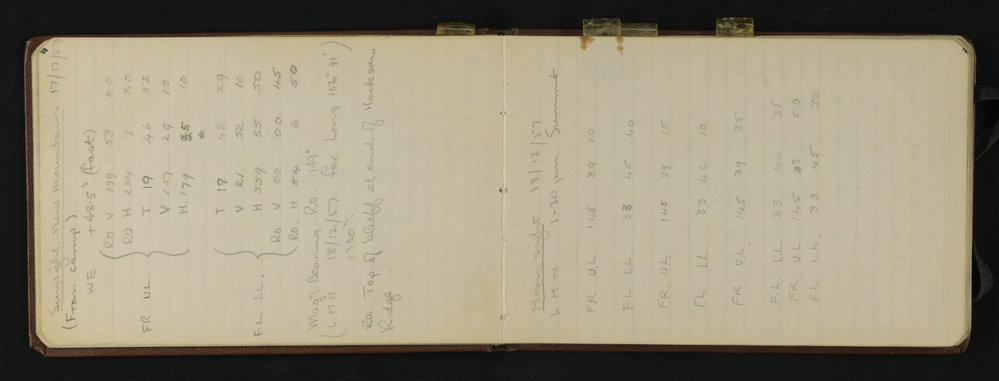 Sunsight New Mountain 17/12/57
(From camp)
WE +48.5s (fast)
RO V 179 58 00
RO. H. 234 7 20
T 19 46 52
FR. UL. V 157 29 10
H. 179 10
T 19 48 29
V 21 52 10
F.L. LL. H 359 35 50
RO V 00 00 45
RO. H 54 6 50
Magn. Bearing RO. 149°
(L.M.M. 18/12/57 for Long 156° 31'
1330)
Ro Top of bluff at end of
Ridge.
Noon sight 18/12/57
L.M.M. 1-30 pm. Summit
F.R. U.L. 145 39 20
F.L. LL. 33 45 40
FR. U.L. 145 39 15
F.L. LL 33 46 10
FR U.L. 145 39 35
F.L. LL. 33 46 35
F.R. U.L. 145 38 50
F.L. LL. 33 45 30